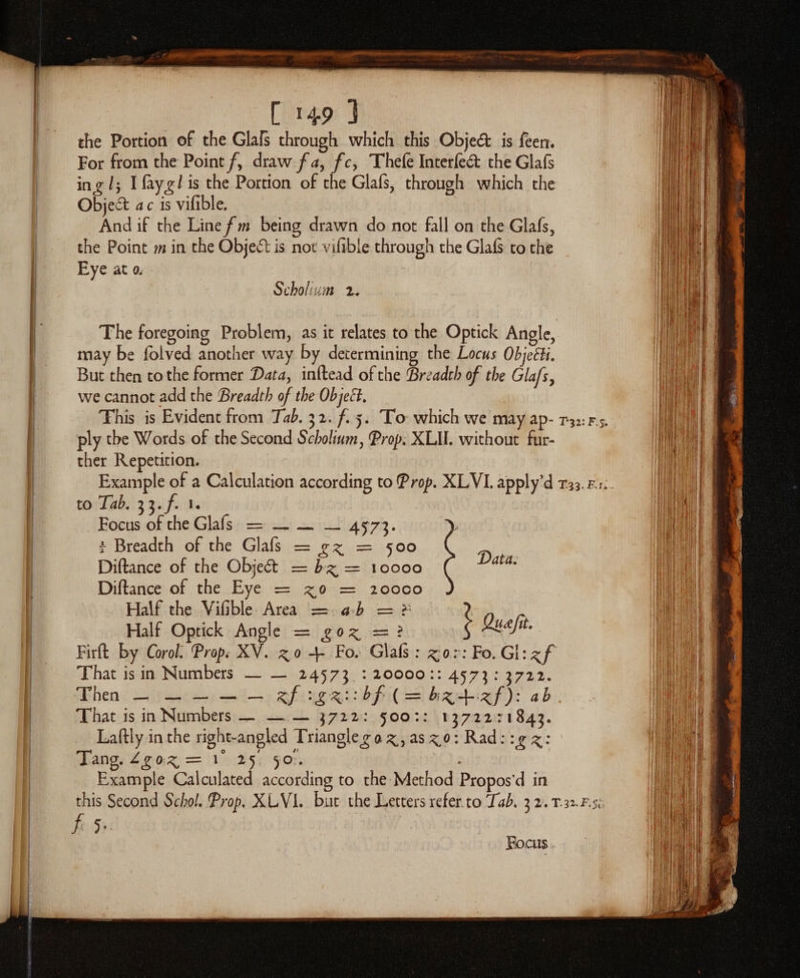 [ 149 ]
the Portion of the Glaſs through which this Object is ſeen.
For from the Point f, draw fa, fc, Theſe Interſect the Glaſs
in g l; I ſay g l is the Portion of the Glaſs, through which the
Object a c is viſible.
And if the Line f m being drawn do not fall on the Glaſs,
the Point m in the Object is not viſible through the Glaſs to the
Eye at o.
Scholium 2.
The foregoing Problem, as it relates to the Optick Angle,
may be ſolved another way by determining the Locus Objecti.
But then to the former Data, inſtead of the Breadth of the Glaſs,
we cannot add the Breadth of the Object.
This is Evident from Tab. 32. f. 5. To which we may ap- T32: F5.
ply the Words of the Second Scholium, Prop. XLII. without fur-
ther Repetition.
Example of a Calculation according to Prop. XLVI. apply'd T33. F1.
to Tab. 33. f. 1.
Focus of the Glaſs = — — — 4573.
½ Breadth of the Glaſs = gz = 500
Diſtance of the Object = bz = 10000
Data.
Diſtance of the Eye = zo = 20000
Half the Viſible Area = ab = ?
Half Optick Angle = goz = ?
Quæſit.
Firſt by Corol. Prop. XV. zo + Fo. Glaſs : zo :: Fo. Gl : zf
That is in Numbers — — 24573 : 20000 :: 4573 : 3722.
Then — — — — — zf : gz :: bf (= bz + zf) : ab.
That is in Numbers — — — 3722 : 500 :: 13722 : 1843.
Laſtly in the right-angled Triangle goz, as zo : Rad :: gz :
Tang. ∠goz = 1° 25′ 50″.
Example Calculated according to the Method Propos'd in
this Second Schol. Prop. XLVI. but the Letters refer to Tab. 32. T.32.F.5.
f. 5.
Focus